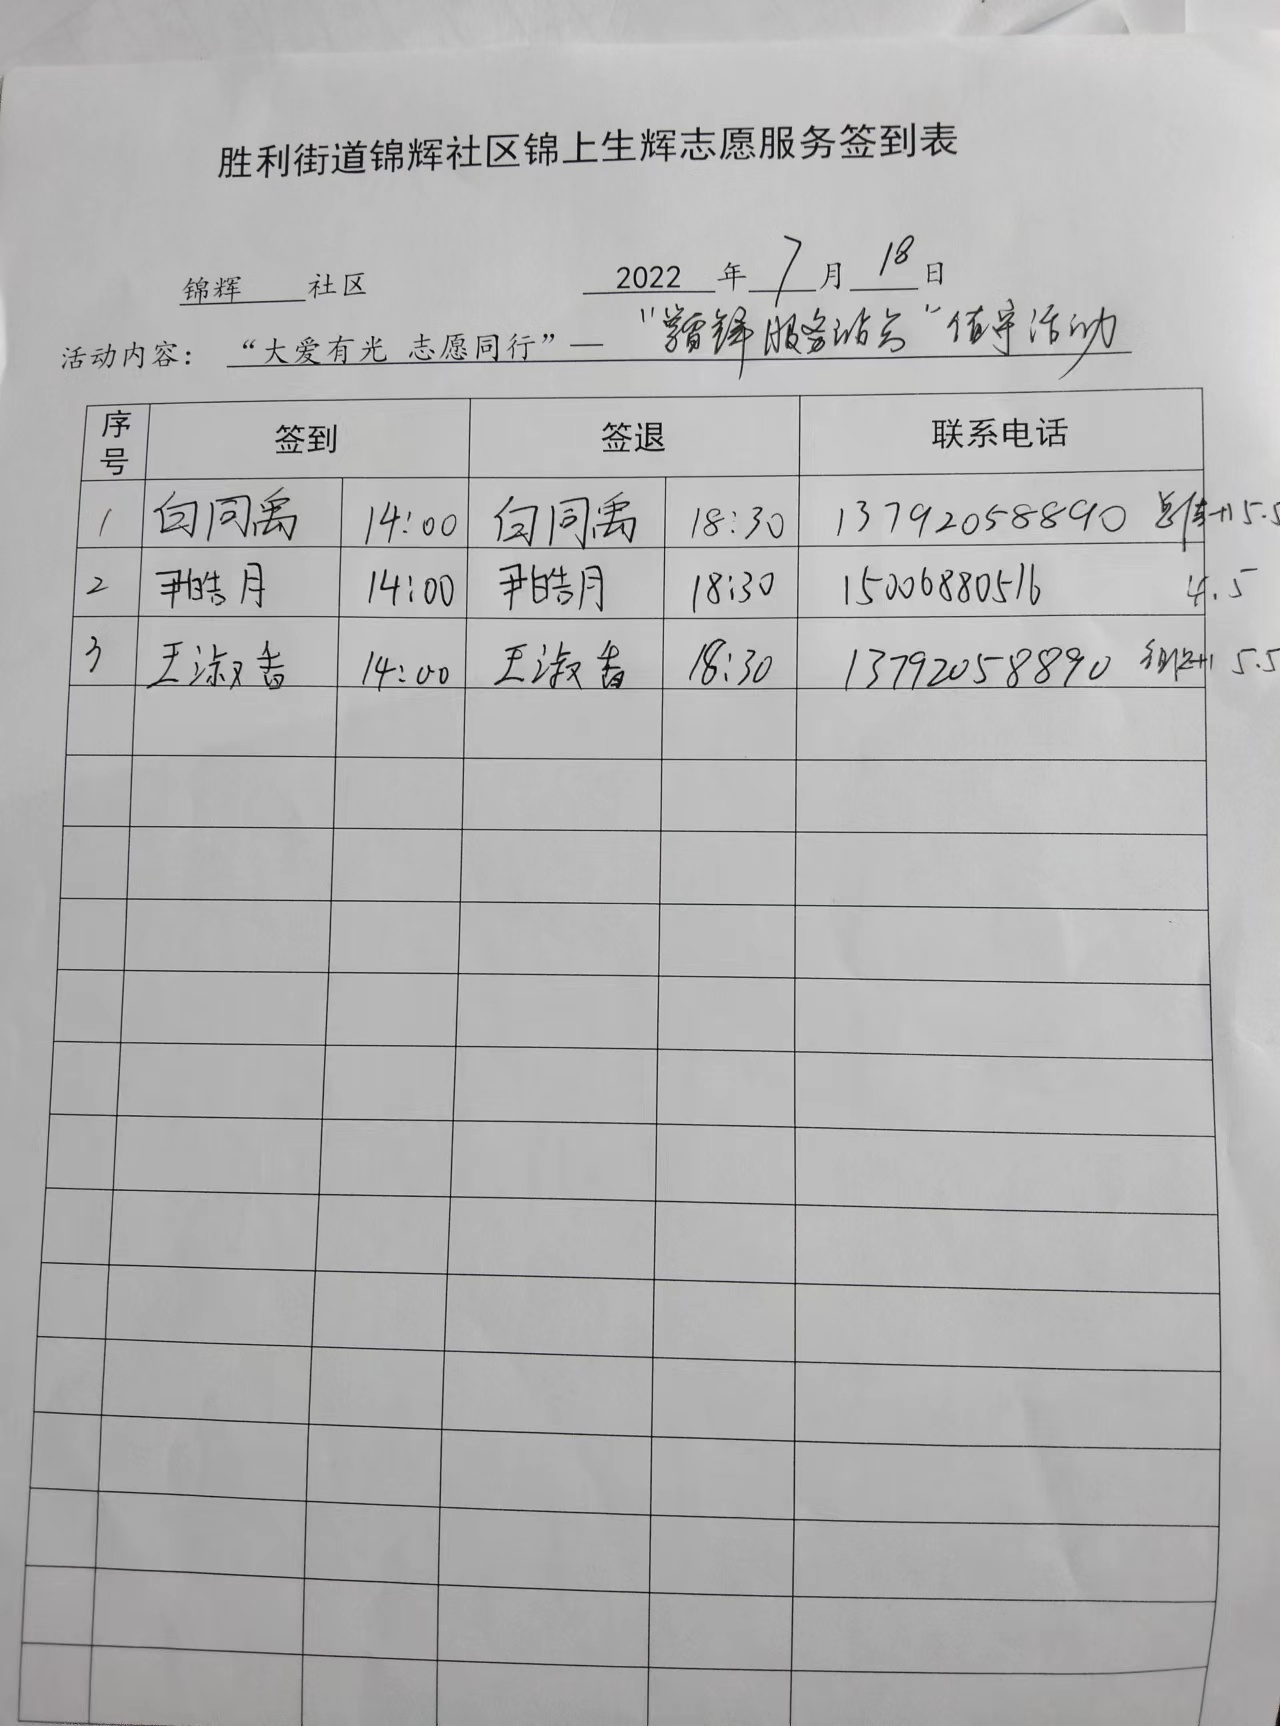 胜利街道锦辉社区锦上生辉志愿服务签到表
锦辉 社区 2022 年 7 月 18 日
活动内容：“大爱有光 志愿同行”— “学雷锋服务站台”值守活动
序号 签到 签退 联系电话
1 白同禹 14:00 白同禹 18:30 13792058890 5.5
2 尹皓月 14:00 尹皓月 18:30 15006880516 4.5
3 王淑香 14:00 王淑香 18:30 13792058890 5.5